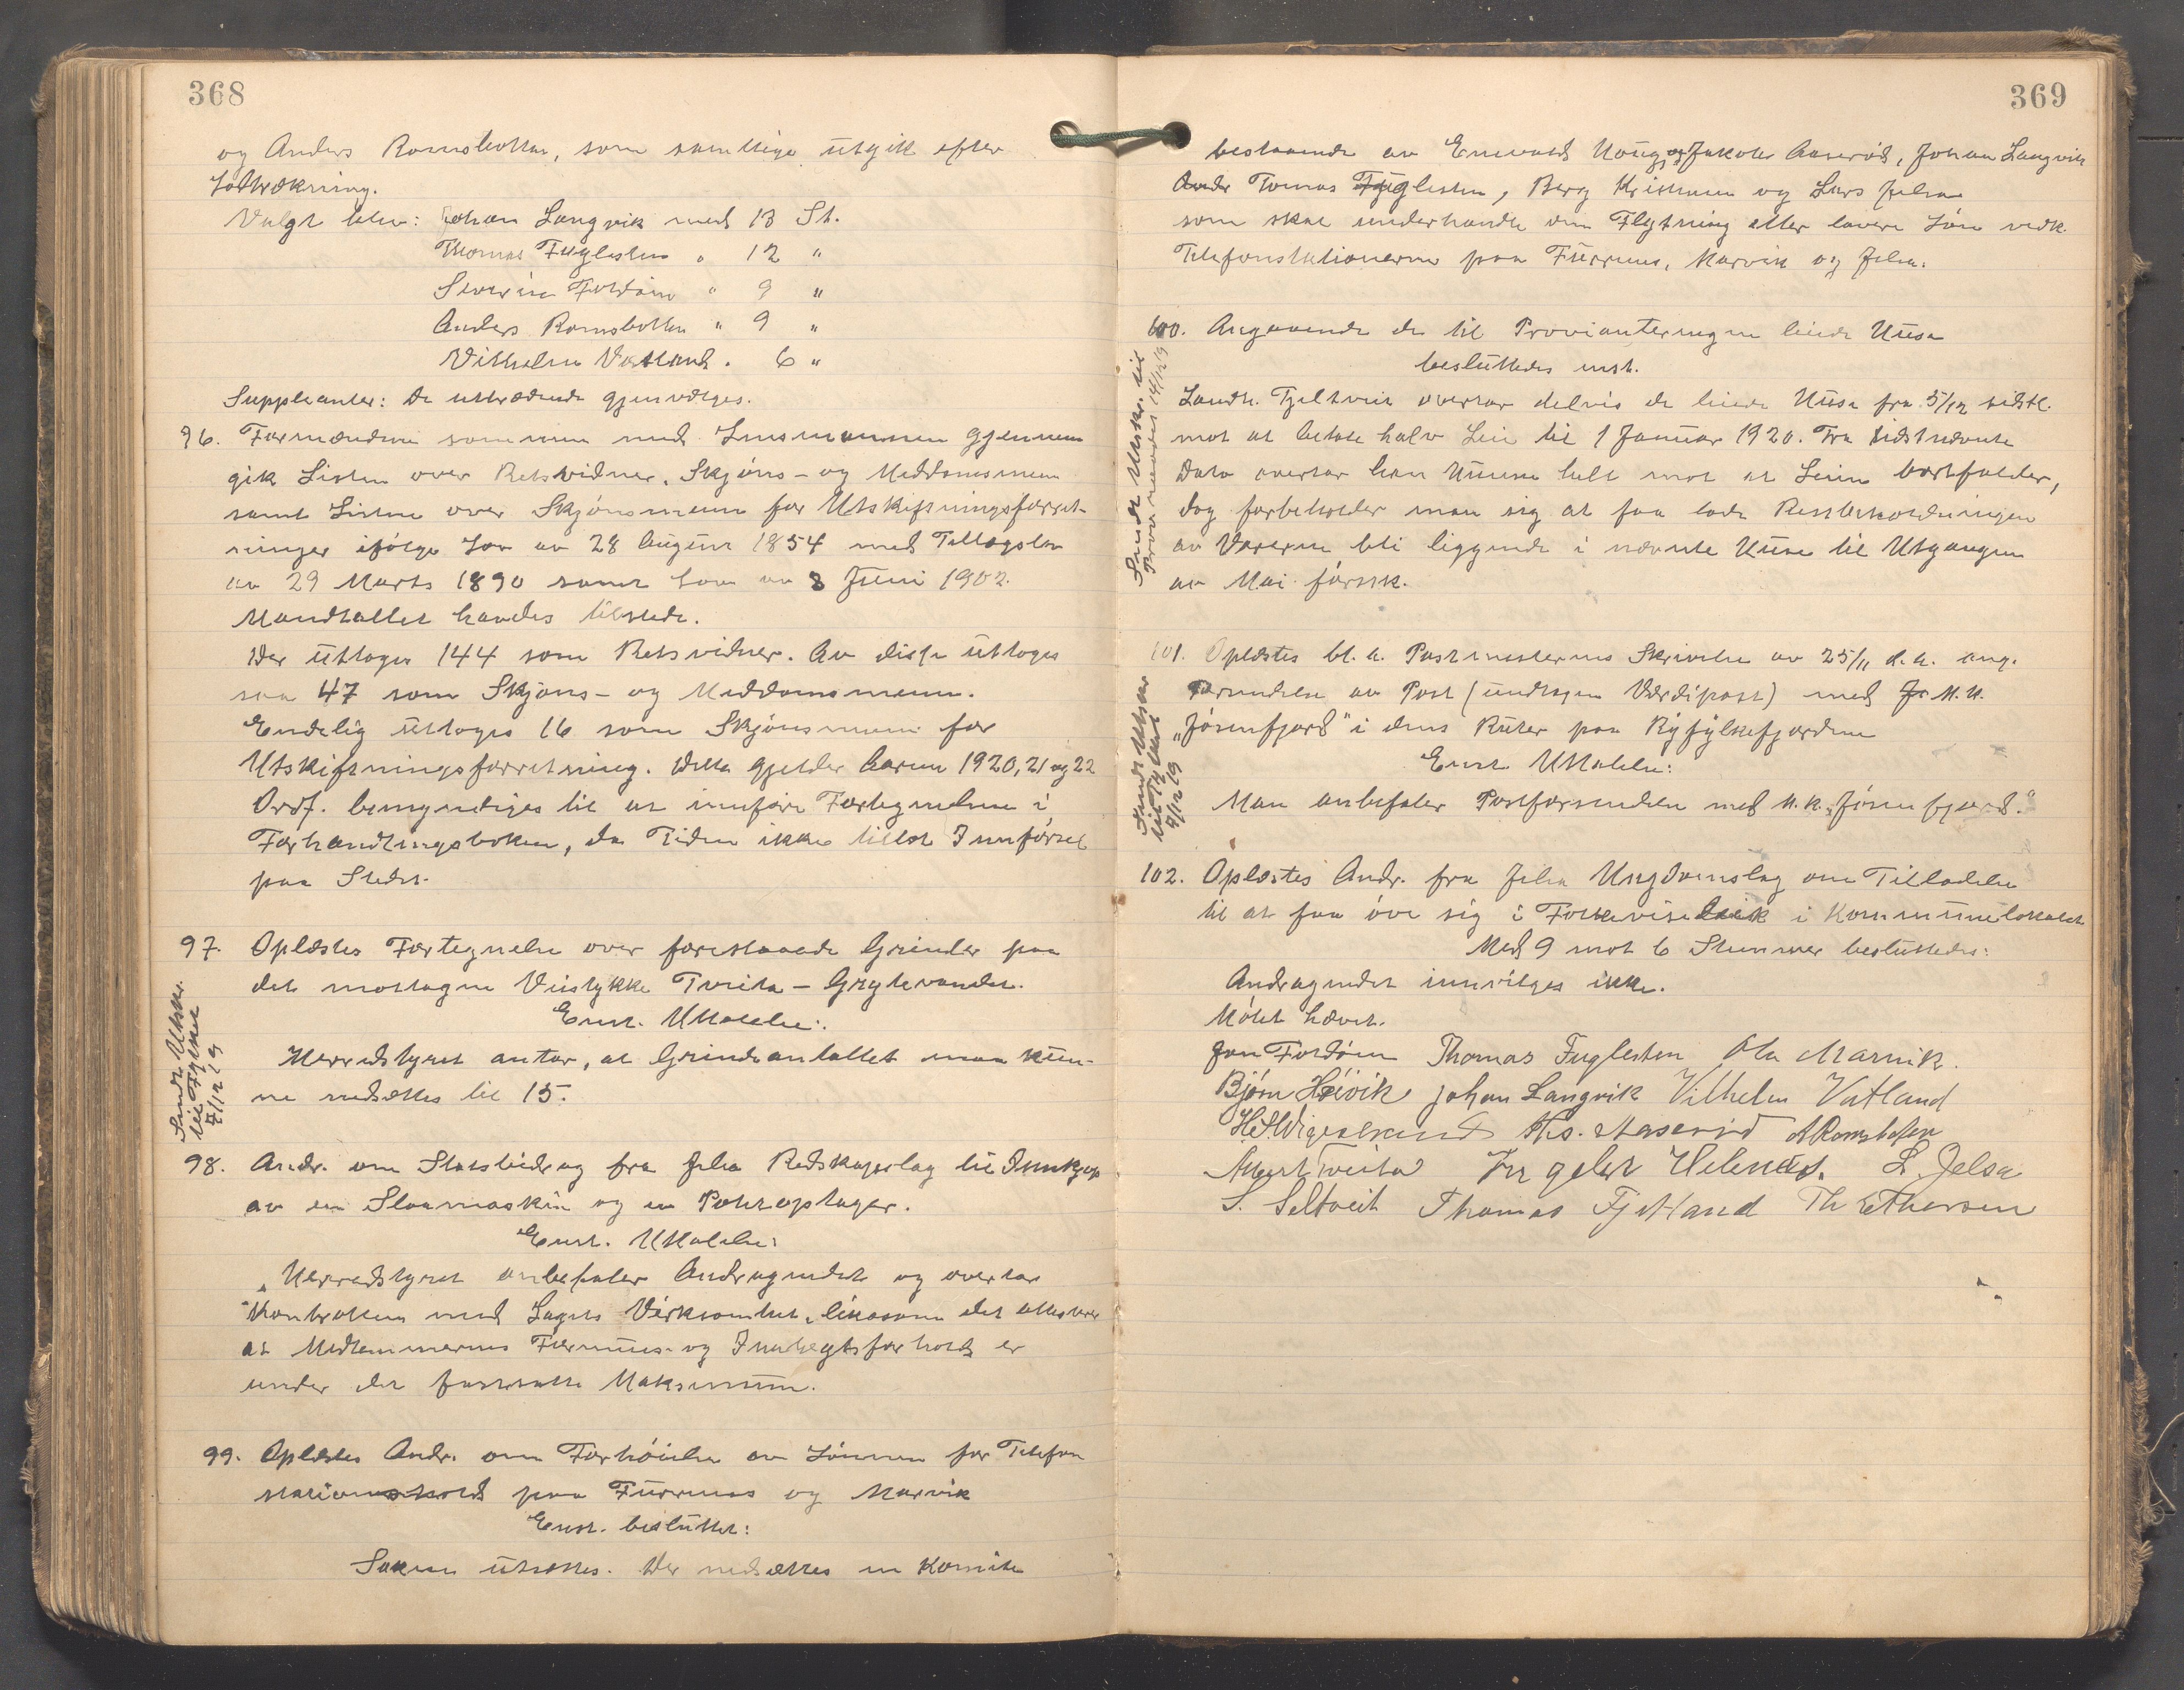 368
og Anders Romsbotten, som samtlige utgik efter
Lodtrækning.
Valgt blev: Johan Langvik med 13 St.
Thomas Fuglesten " 12 "
Severin Foldøen " 9 "
Anders Romsbotten " 9 "
Vilhelm Vatland " 6 "
Suppleanter: De uttrædende gjenvælges.
96. Formændene sammen med Lensmannen gjennem
gik Listen over Retsvidner, Skjøns- og Meddomsmenn
samt Listen over Skjønsmenn for Utskiftningsforret-
ninger ifølge Lov av 28 August 1854 med Tillægslov
av 29 Marts 1890 samt Lov av 3 Juni 1902.
Mandtallet havdes tilstede.
Der uttoges 144 som Retsvidner. Av disse uttoges
saa 47 som Skjøns- og Meddomsmenn.
Endelig uttoges 16 som Skjønsmenn for
Utskiftningsforretning. Dette gjelder Aarene 1920, 21 og 22
Ordf. bemyndiges til at innføre Fortegnelsen i
Forhandlingsboken, da Tiden ikke tillot Innførsel
paa Stedet.
97. Oplæstes Fortegnelse over forestaaende Grinder paa
det mottagne Veistykke Tveita - Grytevandet.
Enst. Uttalelse:
Herredstyret antar, at Grindeantallet maa kun-
ne nedsættes til 15.
Sendt Utskr.
til Fylket
7/12 19
98. Andr. om Statsbidrag fra Jelsa Redskapslag til Innkjøp
av en Slaamaskin og en Potetoptager.
Enst. Uttalelse:
"Herredstyret anbefaler Andragendet og overtar
Kontrollen med Lagets Virksomhet, likesom det attesterer
at Medlemmernes Formues- og Inntegtsforhold er
under det fastsatte Maksimum.
99. Oplæstes Andr. om Forhøielse av Lønnen for Telefon
stationshold paa Furrenes og Marvik
Enst. besluttet:
Saken utsættes. Der nedsættes en Komite
369
bestaaende av Enevald Houg, og Jakob Aaserød, Johan Langvik
Andr Tomas Fuglesten, Berg Kristensen og Lars Jelsa
som skal underhandle om Flytning eller lavere Løn vedk.
Telefonstationerne paa Furrenes, Marvik og Jelsa.
100. Angaaende de til Provianteringen leiede Huse
besluttedes enst.
Landh. Fjeltveit overtar delvis de leiede Huse fra 5/12 sidstl.
mot at betale halv Leie til 1 Januar 1920. Fra sidstnævnte
Dato overtar han Husene helt mot at Leien bortfalder,
dog forbeholder man sig at faa lade Restbeholdningen
av Varerne bli liggende i nævnte Huse til Utgangen
av Mai førstk.
Sendt Utskr. til
Provraadet 14/12 19
101. Oplæstes bl. a. Postmesterens Skrivelse av 25/11 d. a. ang.
Forsendelse av Post (undtagen Værdipost) med Jø M.K.
"Jøsenfjord" i dens Ruter paa Ryfylkefjordene
Enst. Uttalelse:
Man anbefaler Postforsendelse med M.K. "Jøsenfjord."
Sendt Utskr
til Fylket
9/12 19
102. Oplæstes Andr. fra Jelsa Ungdomslag om Tilladelse
til at faa øve sig i Folkeviseleik i Kommunelokalet
Med 9 mot 6 Stemmer besluttedes:
Andragendet innvilges ikke.
Møtet hævet.
Jon Foldøen Thomas Fuglesten Ola Marvik.
Bjørn Høivik Johan Langvik Vilhelm Vatland
Ths. Aaserød A Romsboten
Tveita Helenes. L. Jelsa
S. Seltveit Thomas Fjetland